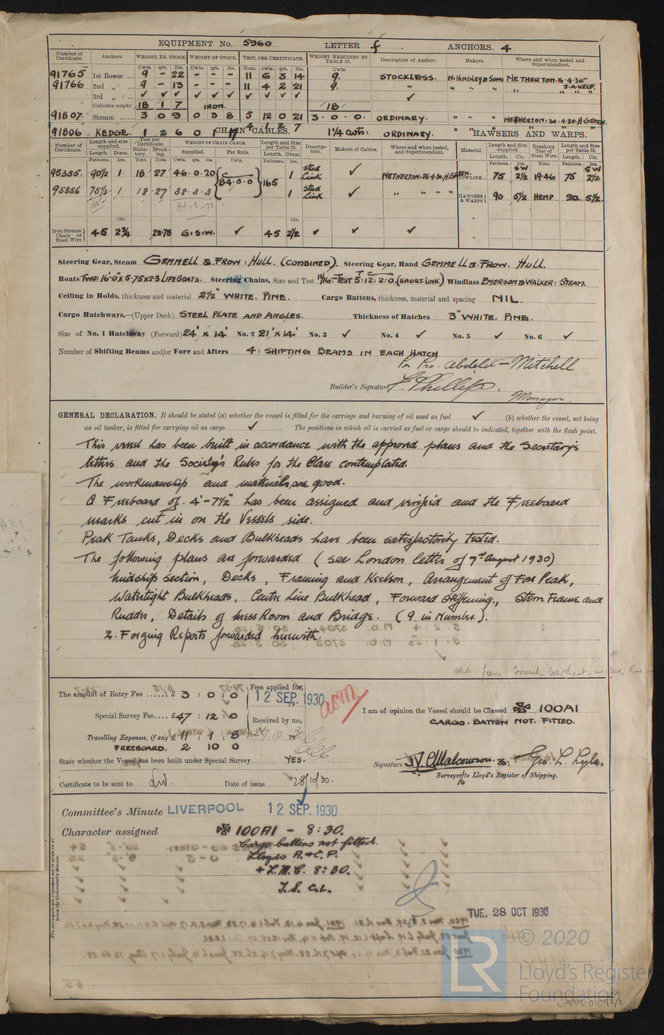 EQUIPMENT No. 5960 LETTER f ANCHORS. 4
Number of Certificate. Anchors. WEIGHT, EX. STOCK. WEIGHT OF STOCK. TEST, PER CERTIFICATE. WEIGHT REQUIRED BY TABLE 31. Description of Anchor. Makers. Where and when tested and Superintendent.
91765 1st Bower 9 - 22 - - - 11 6 3 14 9. STOCKLESS. N. HINGLEY & SONS NETHERTON. 16.4.30
91766 2nd 9 - 13 - - - 11 4 2 21 9.
3rd
Collective weight. 18 1 7 IRON. 18
91807. Stream 3 0 9 0 3 8 5 12 0 21 3.0.0 ORDINARY. NETHERTON. 30.4.30
91806 KEDGE. 1 2 6 0 1 4 1 2 7 1 1/4 Cwts: ORDINARY.
CHAIN CABLES. HAWSERS AND WARPS.
Number of Certificate. Length and size supplied. Test per Certificate. WEIGHT OF CHAIN CABLE. Length and Size per Table 31. Description. Makers of Cables. Where and when tested, and Superintendent. Material Length and Size supplied. Breaking Test of Steel Wire. Length and Size per Table 31.
95355. 90 1/2 1 18 27 46.0.20 84.0.0 165 1 Stud Link NETHERTON. 26.4.30 75 2 1/2 19.46 75 2 1/2
95356 75 1/2 1 18 27 38.3.3 1 Stud Link HAWSERS & WARPS 90 5 1/2 HEMP 90 5 1/2
Iron Stream Chain or Steel Wire 45 2 3/4 G.S.W. 45 2 1/2
Steering Gear, Steam GEMMELL & FROW: HULL. (COMBINED). Steering Gear, Hand GEMMELL & FROW. HULL.
Boats TWO: 16'.0 X 5.75 X 2.3 LIFEBOATS. Steering Chains, Size and Test TEST 5:12:2:0 (SHORT LINK) Windlass EMERSON & WALKER: STEAM.
Ceiling in Holds, thickness and material 2 1/2" WHITE. PINE. Cargo Battens, thickness, material and spacing NIL.
Cargo Hatchways.—(Upper Deck) STEEL PLATE AND ANGLES. Thickness of Hatches 3" WHITE. PINE.
Size of No. 1 Hatchway (Forward) 24' X 14' No. 2 21' X 14' No. 3 ✓ No. 4 ✓ No. 5 ✓ No. 6 ✓
Number of Shifting Beams and/or Fore and Afters 4: SHIFTING BEAMS IN EACH HATCH
Mitchell
Builder's Signature Phillips
Manager
GENERAL DECLARATION. It should be stated (a) whether the vessel is fitted for the carriage and burning of oil used as fuel ✓ (b) whether the vessel, not being
an oil tanker, is fitted for carrying oil as cargo ✓ The positions in which oil is carried as fuel or cargo should be indicated, together with the flash point.
This vessel has been built in accordance with the approved plans and the Secretary's
letters and the Society's Rules for the Class contemplated.
The workmanship and materials are good.
A Freeboard of 4'-7 1/2" has been assigned and verified and the Freeboard
marks cut in on the Vessels side.
Peak Tanks, Decks and Bulkheads have been satisfactorily tested.
The following plans are forwarded (see London letter of 7th August 1930)
Midship section, Decks, Framing and Keelson, Arrangement of Fore Peak,
Watertight Bulkheads, Centre Line Bulkhead, Forward Stiffening, Stern Frame and
Rudder, Details of Mess Room and Bridge. (9 in Number.).
2. Forging Reports forwarded herewith.
The amount of Entry Fee £ 3 : 0 : 0 Fees applied for, 12 SEP. 1930
Special Survey Fee £ 47 : 12 : 0 Received by me,
Travelling Expenses, if any £ 11 : 1 : 8
FREEBOARD. 2 10 0
I am of opinion the Vessel should be Classed ✠ 100A1
CARGO. BATTEN NOT. FITTED.
State whether the Vessel has been built under Special Survey YES.
Signature J.V. Malcomson & Geo. L. Lyle.
Surveyors to Lloyd's Register of Shipping.
Certificate to be sent to Date of issue 28/10/30
Committee's Minute LIVERPOOL 12 SEP. 1930
Character assigned ✠ 100A1 - 8:30.
Cargo battens not fitted.
Lloyds A. & C. P.
+ L.M.C. 8:30.
T.S. C.L.
TUE. 28 OCT 1930
LR © 2020
Lloyd's Register
Foundation